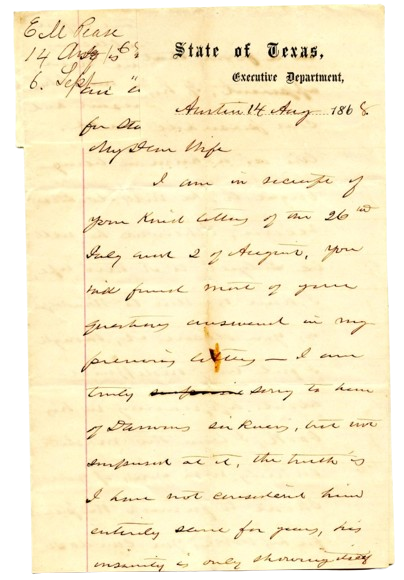 E M Pease
14 Aug /68
6. Sept "
for Sta
State of Texas,
Executive Department,
Austin 14 Aug 1868
My Dear Wife
I am in receipt of
your kind letters of the 26th
July and 2 of August, you
will find most of your
questions answered in my
previous letters — I am
truly surprised sorry to hear
of sickness, but not
surprised at it, the truth is
I have not considered him
entirely sane for years, his
insanity is only showing itself